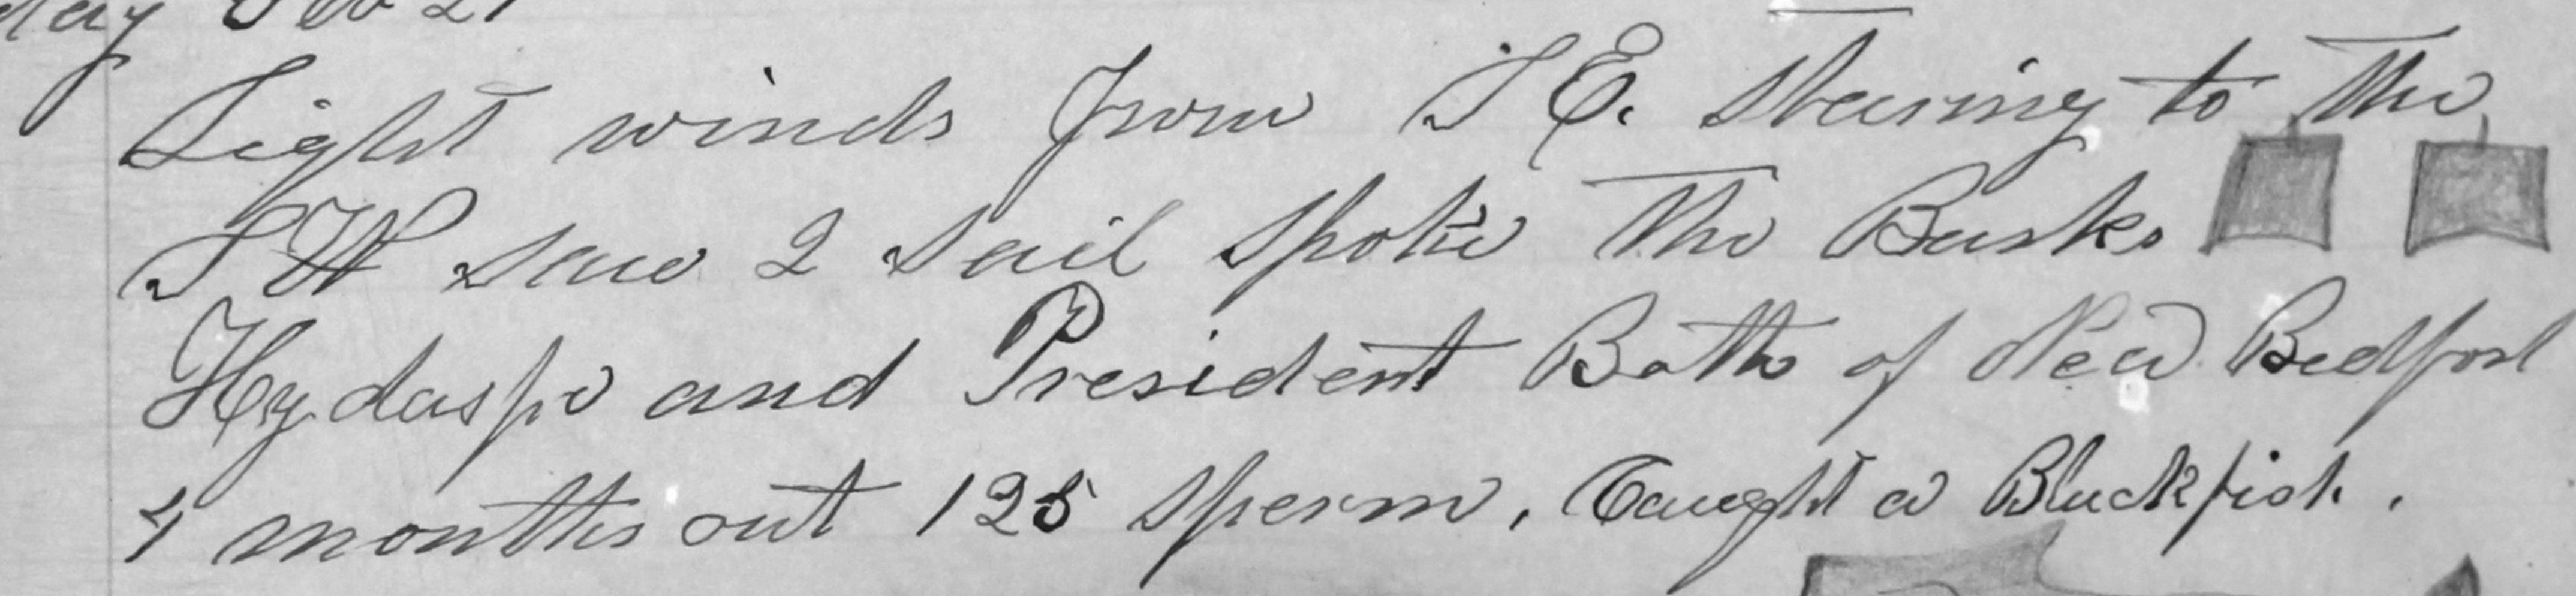 day Feb 21
Light winds from S E. Stearing to the
S W saw 2 sail spoke the Barks
Hydaspe and President Both of New Bedford
4 months out 125 sperm, Caught a Blackfish.